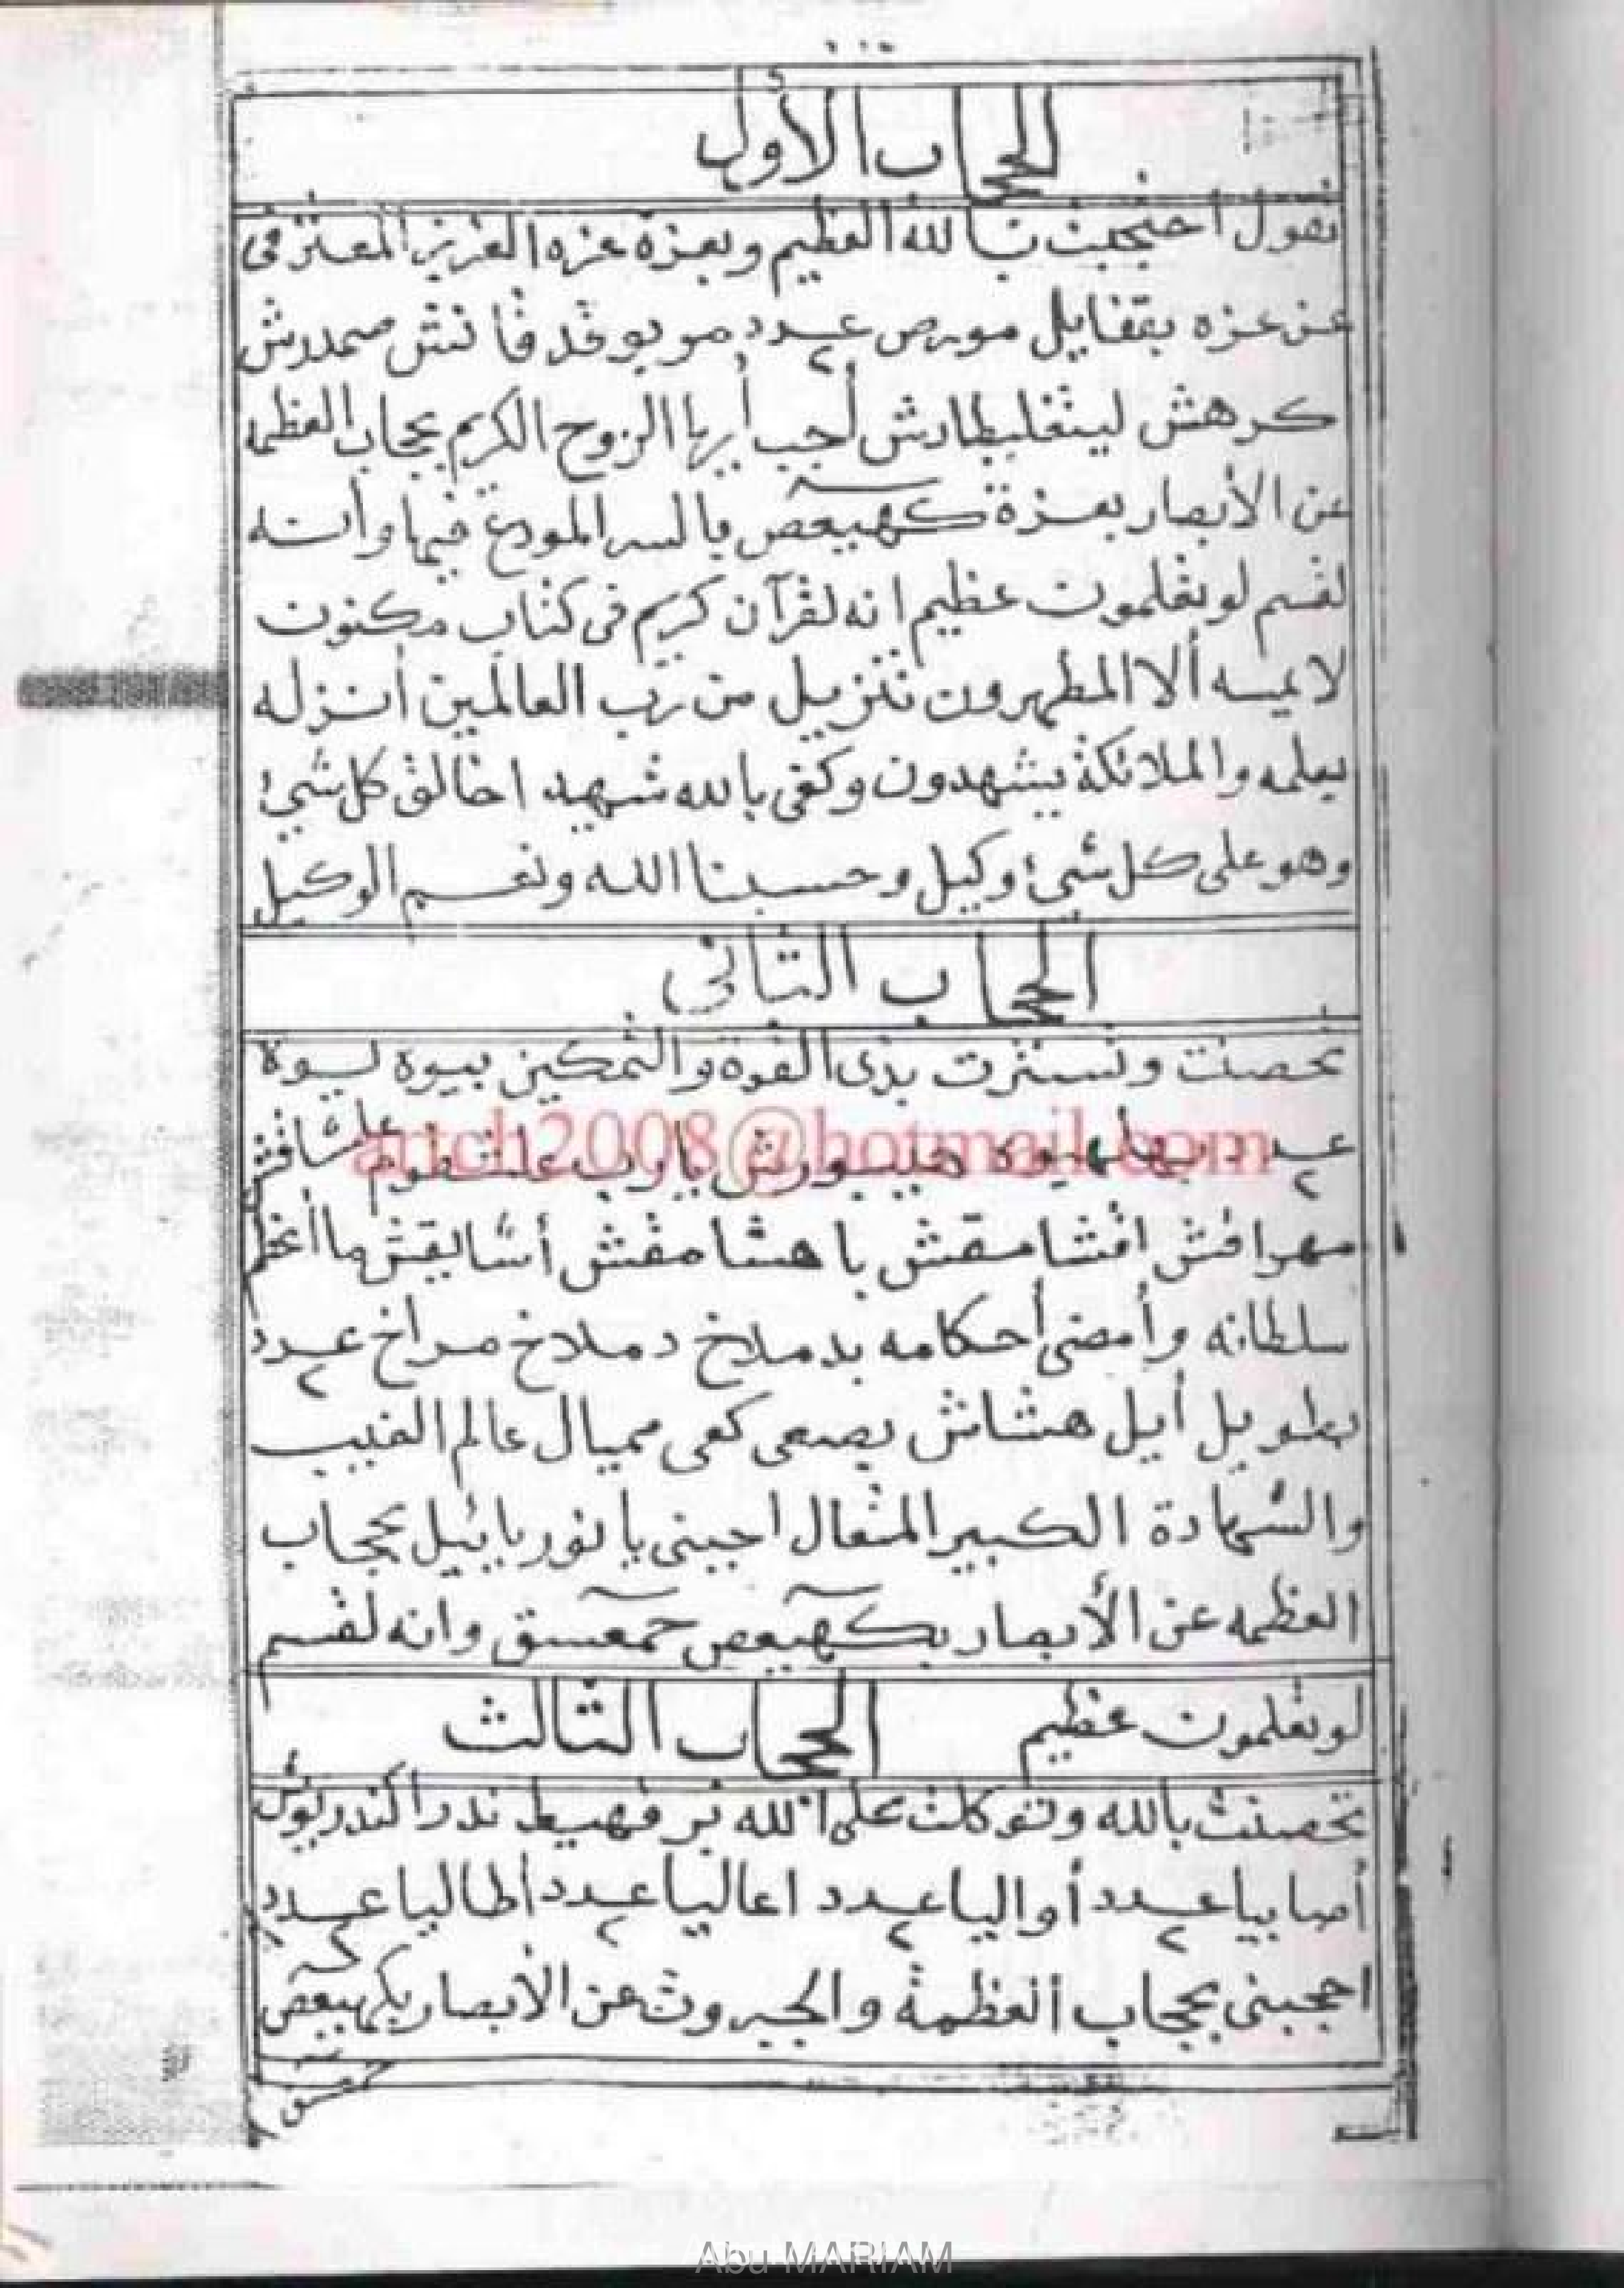 الحجاب الأول
تقول احتجبت بالله العظيم وبعزة عزه العزيز المعتز فى
عن عزه عدد٢
كرهش أجب أيها الروح الكريم بحجاب العظمه
عن الأبصار بعزة كهيعص يا لسر المودع فيها وأنه
لقسم لو تعلمون عظيم انه لقرآن كريم فى كتاب مكنون
لا يمسه ألا المطهرون تنزيل من رب العالمين أنزله
بعلمه والملائكة يشهدون وكفى بالله شهيد اخالق كل شيئ
وهو على كل شيئ وكيل وحسبنا الله ونعم الوكيل
الحجاب الثانى
تحصنت وتسترت بذى القوة والتمكين بيوه ليوة
عدد٢
arich2008@hotmail.com
مهرافش افشامقش يا هشامقش أشايقش ما أعظم
سلطانه وأمضى أحكامه بدملاخ دملاخ مراخ عدد٢
بطويل أيل هشاش بصعى كعى مميال عالم الغيب
والشهادة الكبير المتعال اجبنى يا نوريائيل بحجاب
العظمه عن الأبصار بكهيعص حمعسق وانه لقسم
لو تعلمون عظيم الحجاب الثالث
تحصنت بالله وتوكلت على الله
أصابيا عدد٢ أواليا عدد٢ اعاليا عدد٢ أطاليا عدد٢
احجبنى بحجاب العظمة والجبروت عن الأبصار بكهيعص
حمعسق
Abu-MARIAM